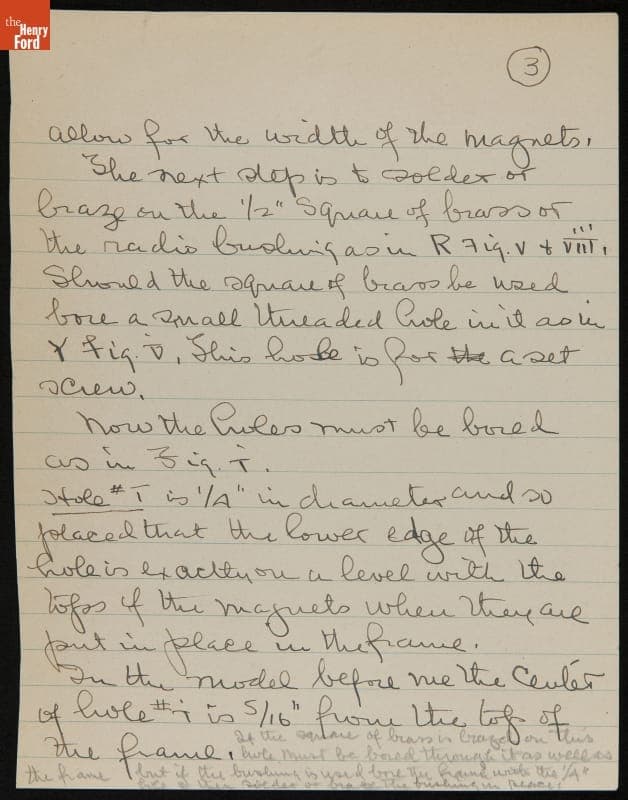 the
Henry
Ford
3
allow for the width of the magnets.
The next step is to solder or
braze on the 1/2" square of brass or
the radio bushing as in R Fig. V & VIII.
Should the square of brass be used
bore a small threaded hole in it as in
Y Fig. V. This hole is for the a set
screw.
Now the holes must be bored
as in Fig. I.
Hole #I is 1/4" in diameter and so
placed that the lower edge of the
hole is exactly on a level with the
tops of the magnets when they are
put in place in the frame.
In the model before me the center
of hole #I is 5/16" from the top of
the frame. If the square of brass is brazed on this
hole must be bored through it as well as
the frame but if the bushing is used bore the frame with the 1/4"
solder or braze the bushing in place.